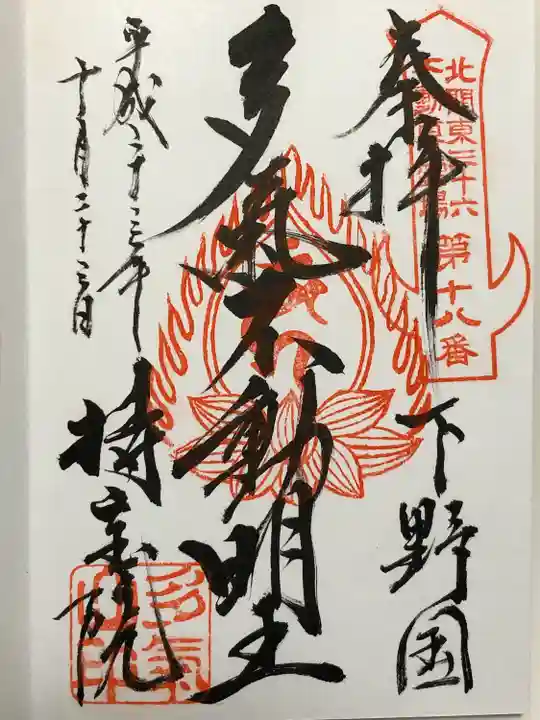 奉拝
北関東三十六
不動尊霊場
第十八番
下野国
多気不動明王
平成二十三年
十月二十三日
持宝院